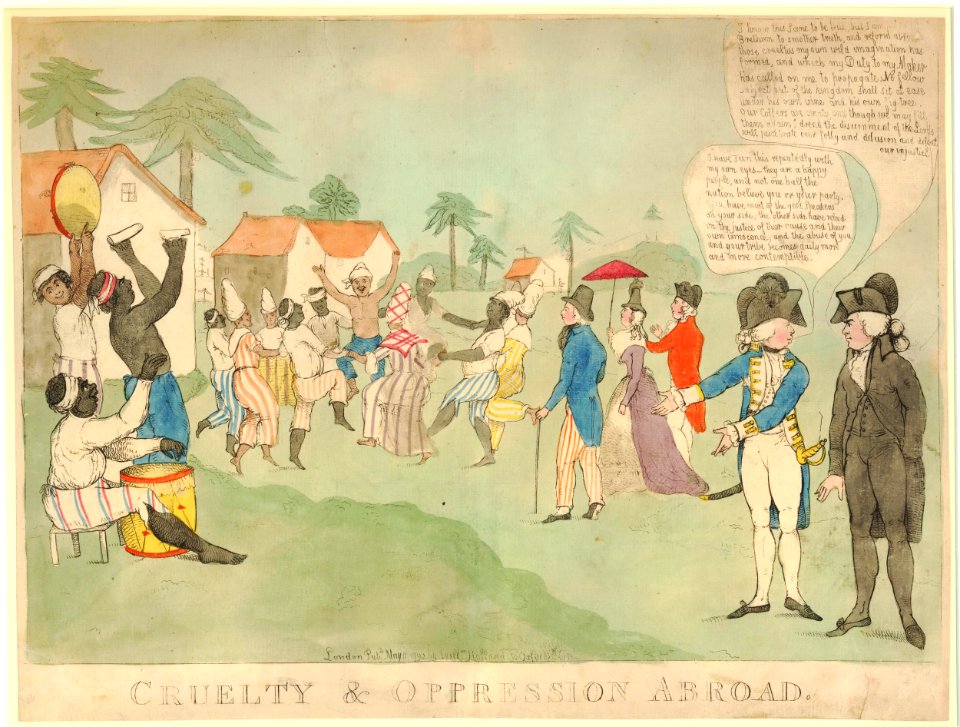 I know this Scene to be true, but I am
Brethren to smother truth, and reform
those cruelties my own wild imagination has
formed, and which my Duty to my Maker
has called on me to propogate. No fellow
subject out of the kingdom shall sit at ease
under his own vine and his own fig tree.
Our Coffers are empty and though we may fill
them again I dread the discernment of the Lords
will penetrate our folly and delusion and defeat
our injustice
I have seen this repeatedly with
my own eyes – they are a happy
people, and not one half the
nation believe you or your party,
You have most of the great Speakers
on your side, the other side have relied
on the justice of their cause and their
own innocence, and the abuse of you
and your tribe becomes daily more
and more contemptible.
London Pubd. May by Willm. Holland Oxford St.
CRUELTY & OPPRESSION ABROAD.